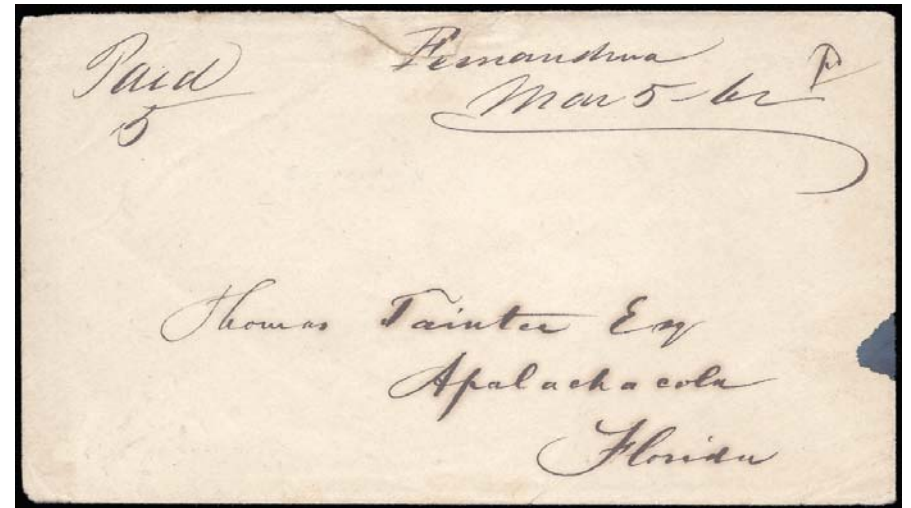 Paid
5
Fernandina
Mar 5-62
P
Thomas Tainter Esq
Apalachacola
Florida